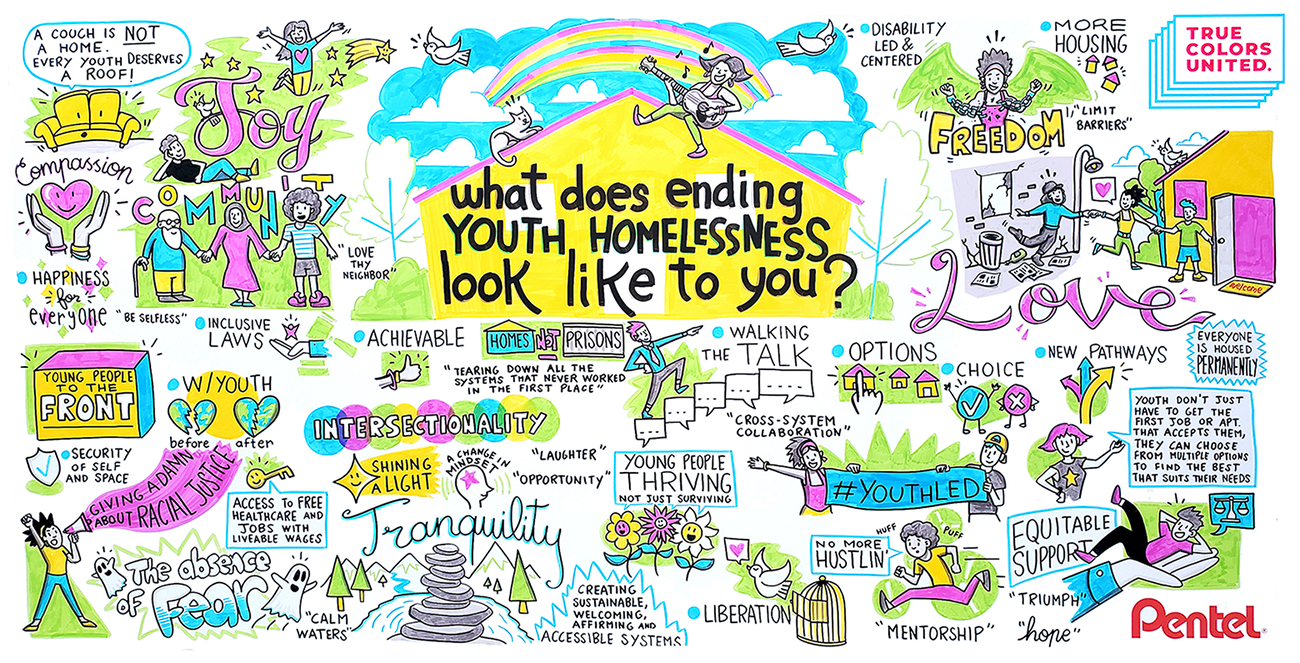 A COUCH IS NOT
A HOME.
EVERY YOUTH DESERVES
A ROOF!
Joy
Compassion
COMMUNITY
"LOVE
THY
NEIGHBOR"
HAPPINESS
for
everyone
"BE SELFLESS"
INCLUSIVE
LAWS
what does ending
YOUTH HOMELESSNESS
look like to you?
DISABILITY
LED &
CENTERED
MORE
HOUSING
FREEDOM
"LIMIT
BARRIERS"
TRUE
COLORS
UNITED.
welcome
Love
ACHIEVABLE
HOMES NOT PRISONS
"TEARING DOWN ALL THE
SYSTEMS THAT NEVER WORKED
IN THE FIRST PLACE"
WALKING
THE TALK
"CROSS-SYSTEM
COLLABORATION"
OPTIONS
CHOICE
NEW PATHWAYS
EVERYONE
IS HOUSED
PERMANENTLY
YOUNG PEOPLE
TO THE
FRONT
W/YOUTH
before after
INTERSECTIONALITY
SECURITY
OF SELF
AND SPACE
GIVING A DAMN
ABOUT RACIAL JUSTICE
ACCESS TO FREE
HEALTHCARE AND
JOBS WITH
LIVEABLE WAGES
SHINING
A LIGHT
A CHANGE IN
MINDSET
"LAUGHTER"
"OPPORTUNITY"
YOUNG PEOPLE
THRIVING
NOT JUST SURVIVING
#YOUTHLED
YOUTH DON'T JUST
HAVE TO GET THE
FIRST JOB OR APT.
THAT ACCEPTS THEM,
THEY CAN CHOOSE
FROM MULTIPLE OPTIONS
TO FIND THE BEST
THAT SUITS THEIR NEEDS
The absence
OF Fear
Tranquility
"CALM
WATERS"
CREATING
SUSTAINABLE,
WELCOMING,
AFFIRMING AND
ACCESSIBLE SYSTEMS
LIBERATION
NO MORE
HUSTLIN'
HUFF
PUFF
"MENTORSHIP"
EQUITABLE
SUPPORT
"TRIUMPH"
"hope"
Pentel®